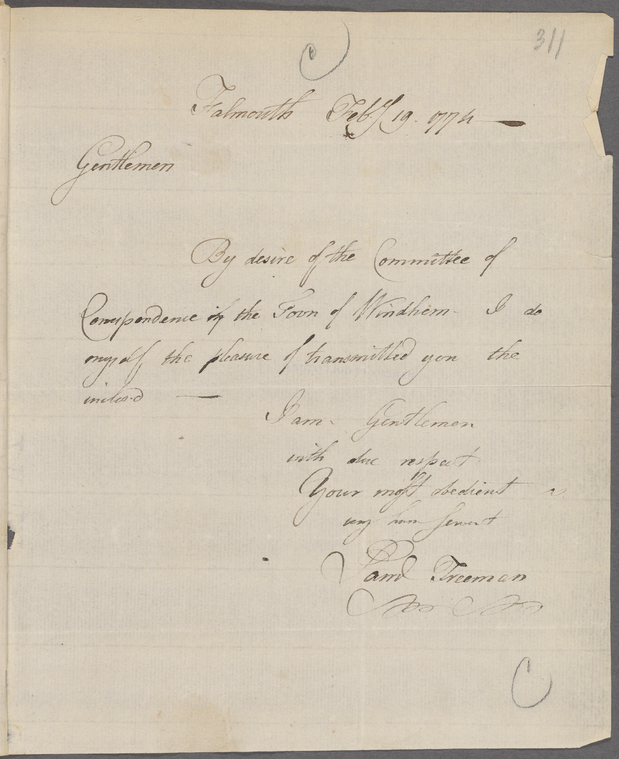 311
Falmouth Feby 19. 1774
Gentlemen
By desire of the Committee of
Correspondence of the Town of Windham I do
myself the pleasure of transmitted you the
inclosd
I am Gentlemen
with due respect
Your most obedient
hum Servt
Saml Freeman